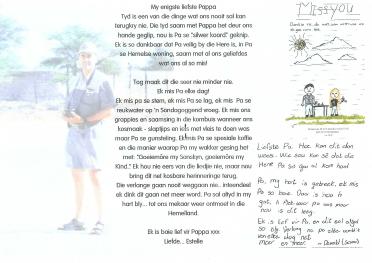 My enigste liefste Pappa
Tyd is een van die dinge wat ons nooit sal kan
terugkry nie. Die tyd saam met Pappa het deur ons
hande geglip, nou is Pa se "silwer koord" geknip.
Ek is so dankbaar dat Pa veilig by die Here is, in Pa
se Hemelse woning, saam met al ons geliefdes
wat ons al so mis!
Tog maak dit die seer nie minder nie.
Ek mis Pa elke dag!
Ek mis pa se stem, ek mis Pa se lag, ek mis Pa se
reukwater op 'n Sondagoggend vroeg. Ek mis ons
grappies en saamsing in die kombuis wanneer ons
kosmaak - slaptjips en iets met vleis te doen was
maar Pa se gunsteling. Ek mis Pa se spesiale koffie
en die manier waarop Pa my wakker gesing het
met: "Goeiemôre my Sonskyn, goeiemôre my
Kind." Ek hou nie eers van die liedjie nie, maar nou
bring dit net kosbare herinneringe terug.
Die verlange gaan nooit weggaan nie.. inteendeel
ek dink dit gaan net meer word. Pa sal altyd in my
hart bly.. tot ons mekaar weer ontmoet in die
Hemelland.
Ek is baie lief vir Pappa xxx
Liefde... Estelle
Miss you
Liefste Pa. Hoe kan dit dan
wees. Wie sou kon sê dat die
Here Pa so gou al kom haal
Pa, my hart is gebreek, ek mis
Pa so baie. Daar is nou 'n
gat, 'n Plek waar pa was maar
nou is dit leeg.
Ek is lief vir Pa, en dit sal altyd
so bly. Verlang na pa elke
van elke dag net
meer en meer.